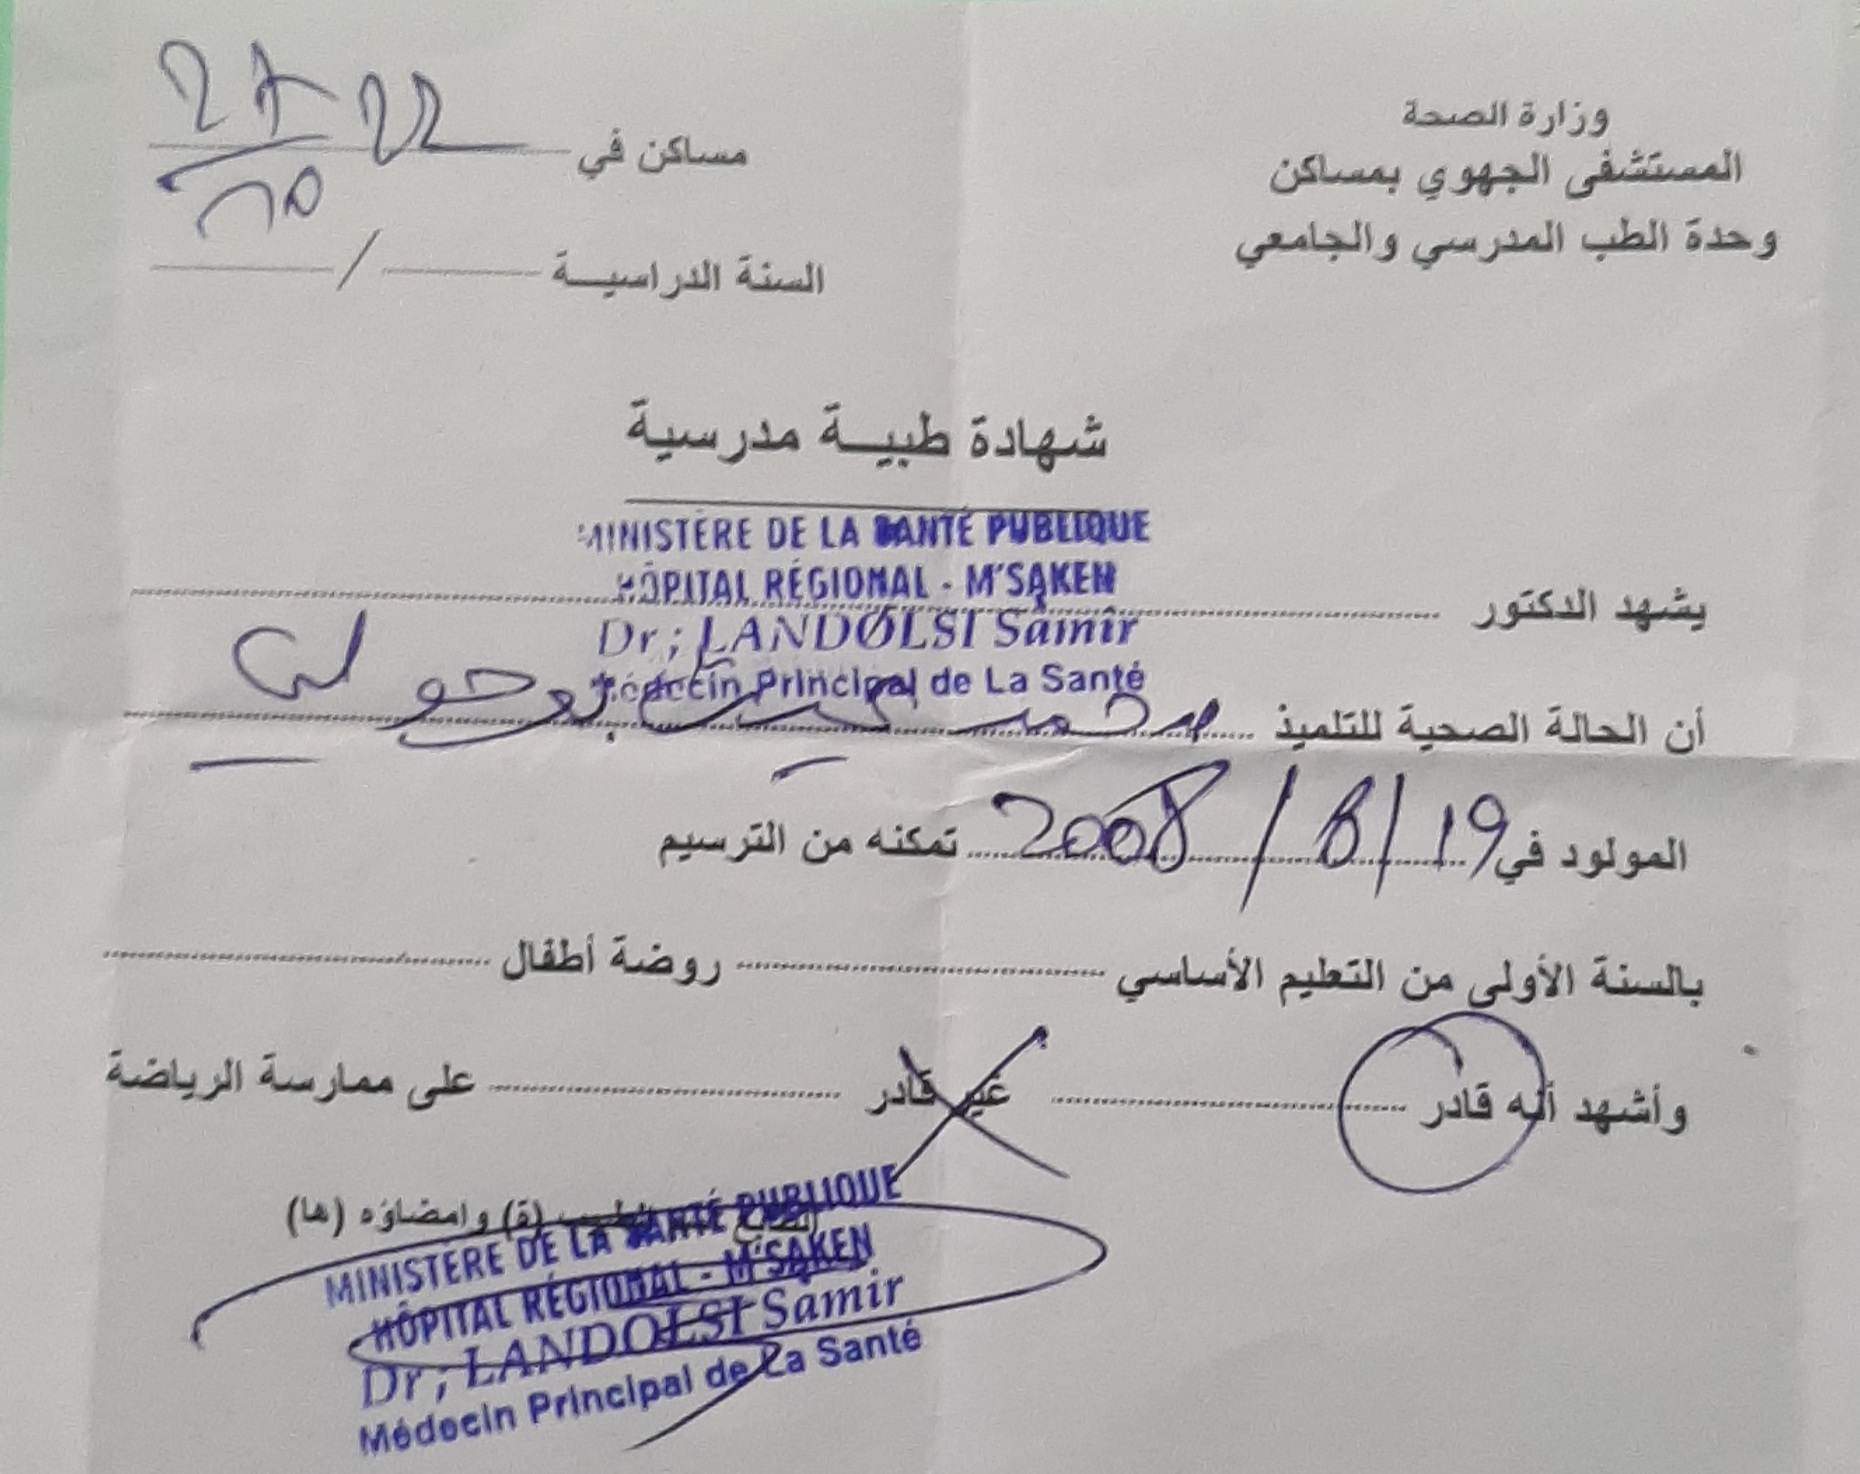 وزارة الصحة
المستشفى الجهوي بمساكن
وحدة الطب المدرسي والجامعي
مساكن في 22
10
السنة الدراسيـــة /
شهادة طبيـــة مدرسية
MINISTÈRE DE LA SANTÉ PUBLIQUE
HÔPITAL RÉGIONAL - M'SAKEN
يشهد الدكتور
Dr ; LANDOLSI Samir
Médecin Principal de La Santé
أن الحالة الصحية للتلميذ محمد
المولود في 19/6/2008 تمكنه من الترسيم
بالسنة الأولى من التعليم الأساسي روضة أطفال
وأشهد أنه قادر غير قادر على ممارسة الرياضة
الطبيب (ة) وامضاؤه (ها)
MINISTÈRE DE LA SANTÉ PUBLIQUE
HÔPITAL RÉGIONAL - M'SAKEN
Dr ; LANDOLSI Samir
Médecin Principal de La Santé